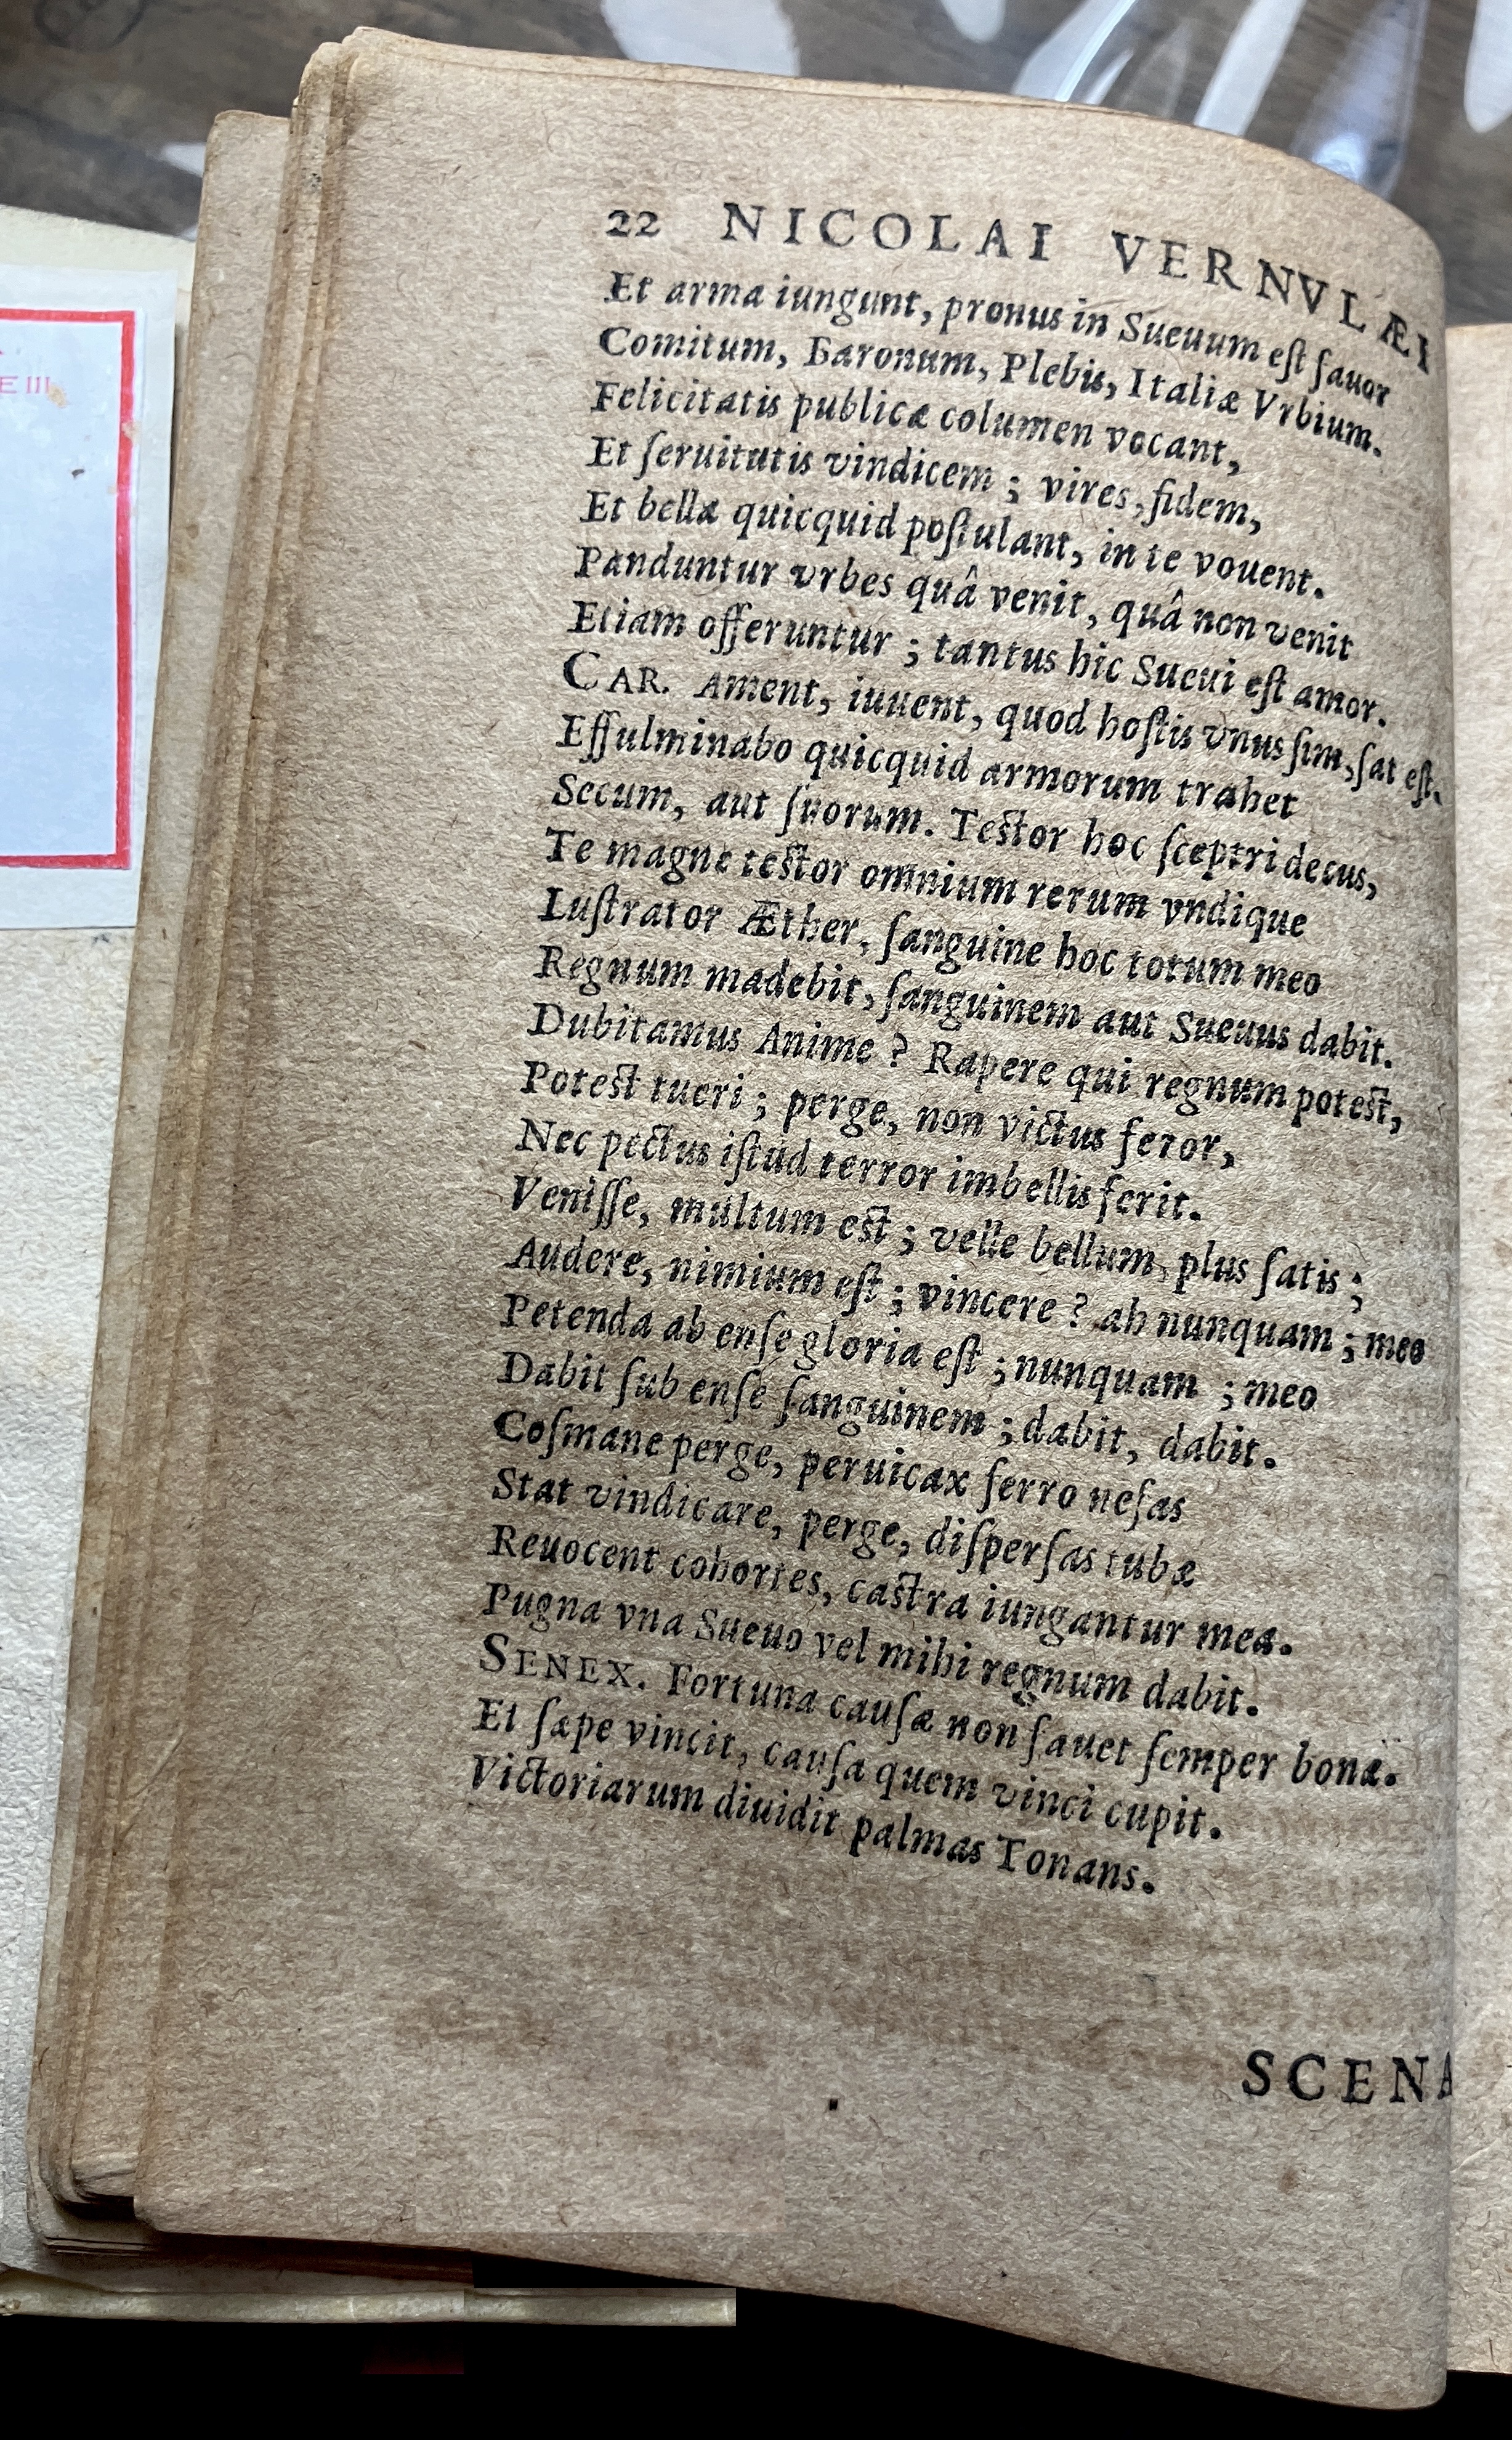 E III
22 NICOLAI VERNVLÆI
Et arma iungunt, pronus in Sueuum est fauor
Comitum, Baronum, Plebis, Italiæ Vrbium.
Felicitatis publicæ columen vocant,
Et ſeruitutis vindicem ; vires, fidem,
Et bella quicquid poſtulant, in te vouent.
Panduntur vrbes quâ venit, quâ non venit
Etiam offeruntur ; tantus hic Sueui eſt amor.
CAR. Ament, iuuent, quod hoſtis vnus ſim, ſat eſt.
Effulminabo quicquid armorum trahet
Secum, aut ſuorum. Testor hoc ſceptri decus,
Te magne testor omnium rerum vndique
Luſtrator Æther, ſanguine hoc totum meo
Regnum madebit, ſanguinem aut Sueuus dabit.
Dubitamus Anime ? Rapere qui regnum potest,
Potest tueri ; perge, non victus feror,
Nec pectus iſtud terror imbellis ferit.
Veniſſe, multum est ; velle bellum, plus ſatis ;
Audere, nimium eſt ; vincere ? ah nunquam ; meo
Petenda ab enſe gloria eſt ; nunquam ; meo
Dabit ſub enſe ſanguinem ; dabit, dabit.
Coſmane perge, peruicax ferro nefas
Stat vindicare, perge, diſperſas tubæ
Reuocent cohortes, castra iungantur mea.
Pugna vna Sueuo vel mihi regnum dabit.
SENEX. Fortuna cauſæ non fauet ſemper bonæ.
Et ſæpe vincit, cauſa quem vinci cupit.
Victoriarum diuidit palmas Tonans.
SCENA